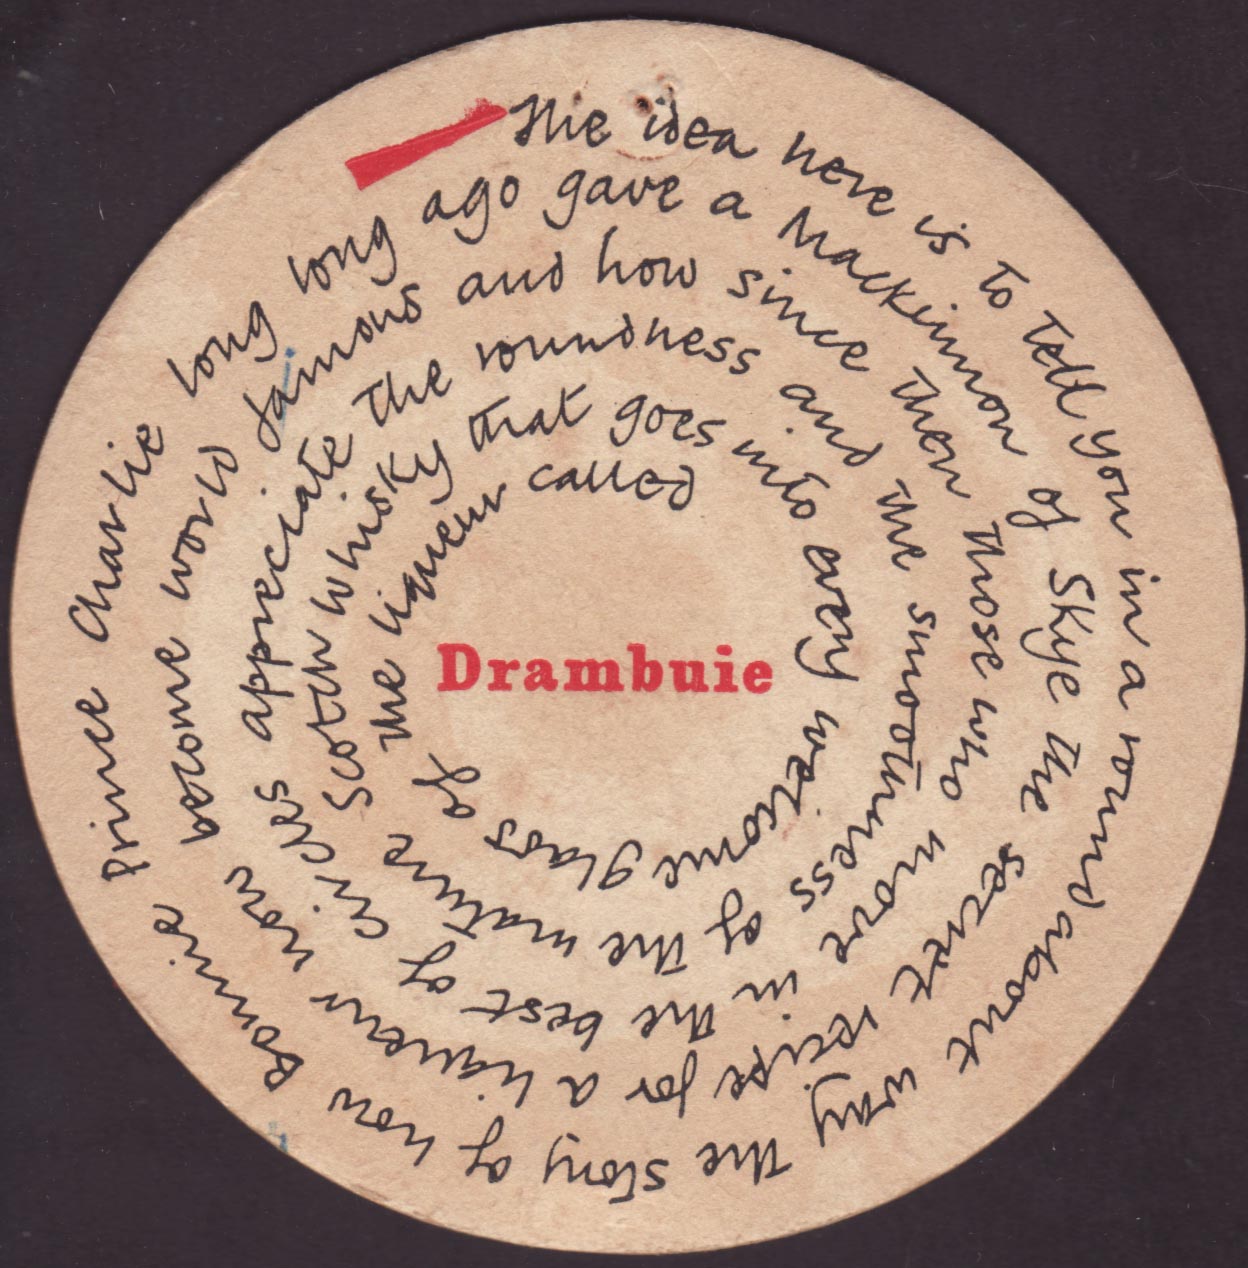 The idea here is to tell you in a roundabout way the story of how Bonnie prince Charlie long long ago gave a Mackinnon of Skye the secret recipe for a liqueur now become world famous and how since then those who move in the best of circles appreciate the roundness and the smoothness of the mature Scotch whisky that goes into every welcome glass of the liqueur called
Drambuie